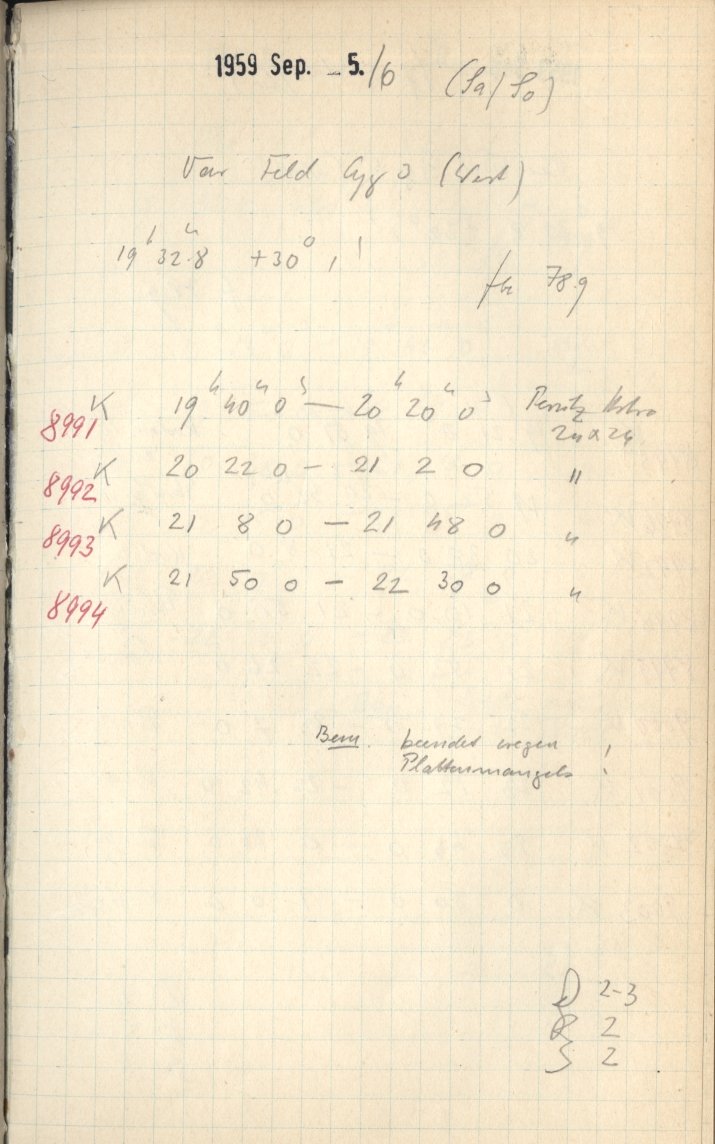 1959 Sep. - 5./6 (Sa/So)
Var Feld Cyg 3 (West)
19h 32m.8 +30° 1'
78.9
8991 K 19h 40m 0s — 20h 20m 0s Perutz Astro
24 x 24
8992 K 20 22 0 – 21 2 0 "
8993 K 21 8 0 — 21 48 0 "
8994 K 21 50 0 – 22 30 0 "
Bem. beendet wegen
Plattenmangels !
D 2-3
R 2
S 2